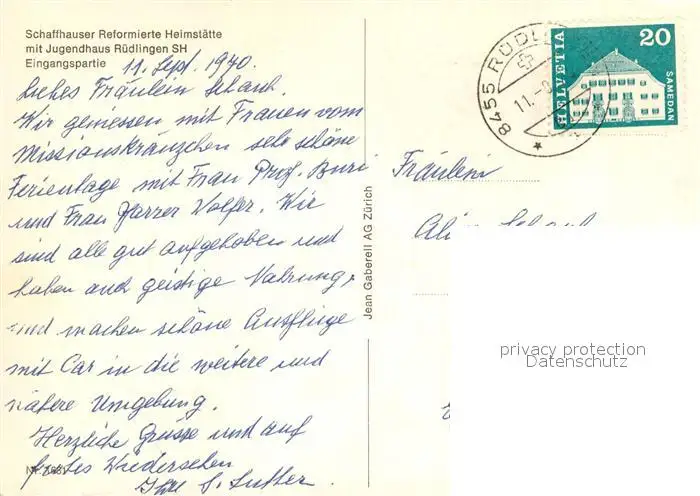 Schaffhauser Reformierte Heimstätte
mit Jugendhaus Rüdlingen SH
Eingangspartie
11. Sept. 1970.
Liebes Fräulein Schaub.
Wir geniessen mit Frauen vom
Missionskränzchen sehr schöne
Ferientage mit Frau Prof. Buri
und Frau Pfarrer Wolfer. Wir
sind alle gut aufgehoben und
haben auch geistige Nahrung,
und machen schöne Ausflüge
mit Car in die weitere und
nähere Umgebung.
Herzliche Grüsse und auf
frohes Wiedersehen
Ihre S. Sutter.
Jean Gaberell AG Zürich
8455 RÜDL
11.
HELVETIA
20
SAMEDAN
Fräulein
privacy protection
Datenschutz